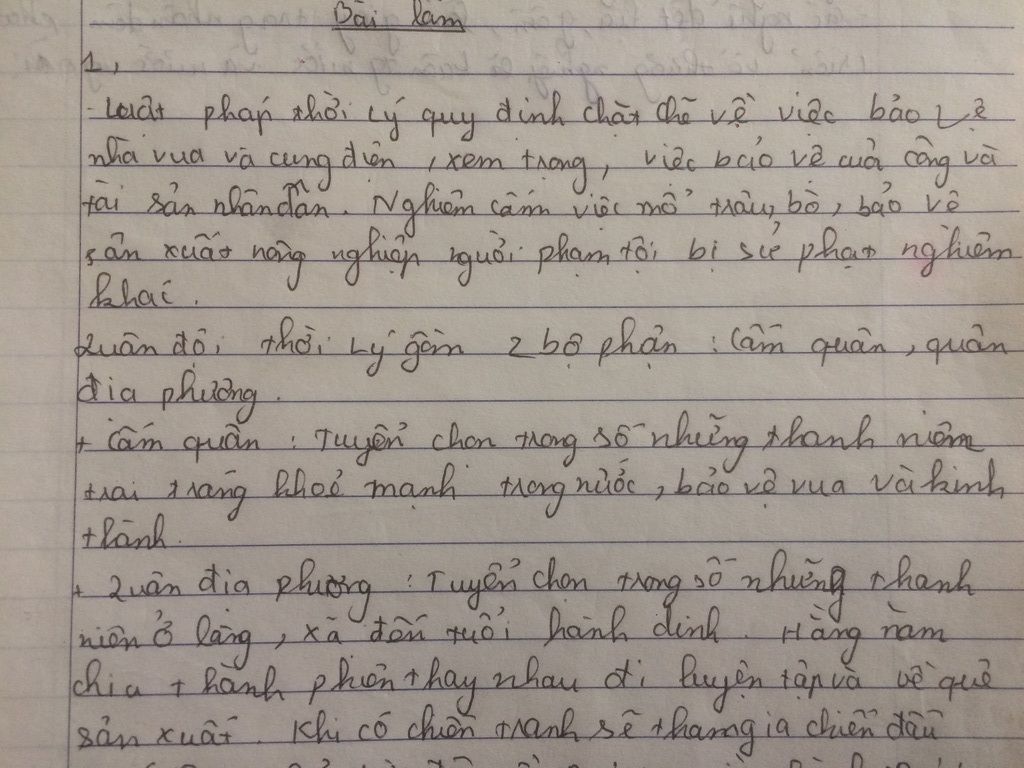 Bài làm
1,
- Luật pháp thời Lý quy định chặt chẽ về việc bảo vệ
nhà vua và cung điện, xem trọng, việc bảo vệ của công và
tài sản nhân dân. Nghiêm cấm việc mổ trâu, bò, bảo vệ
sản xuất nông nghiệp người phạm tội bị sử phạt nghiêm
khắc.
Quân đội thời Lý gồm 2 bộ phận : Cấm quân, quân
địa phương.
+ Cấm quân : Tuyển chọn trong số những thanh niên
trai tráng khoẻ mạnh trong nước, bảo vệ vua và kinh
thành.
+ Quân địa phương : Tuyển chọn trong số những thanh
niên ở làng, xã đến tuổi hành định. Hàng năm
chia thành phiên thay nhau đi luyện tập và về quê
sản xuất. Khi có chiến tranh sẽ tham gia chiến đấu